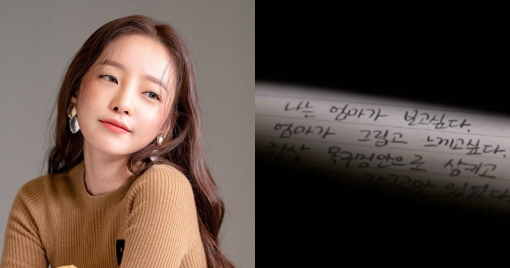 나는 엄마가 보고싶다.
엄마가 그립고 느끼고싶다.
항상 목구멍안으로 삼키고
자꾸만 있었다